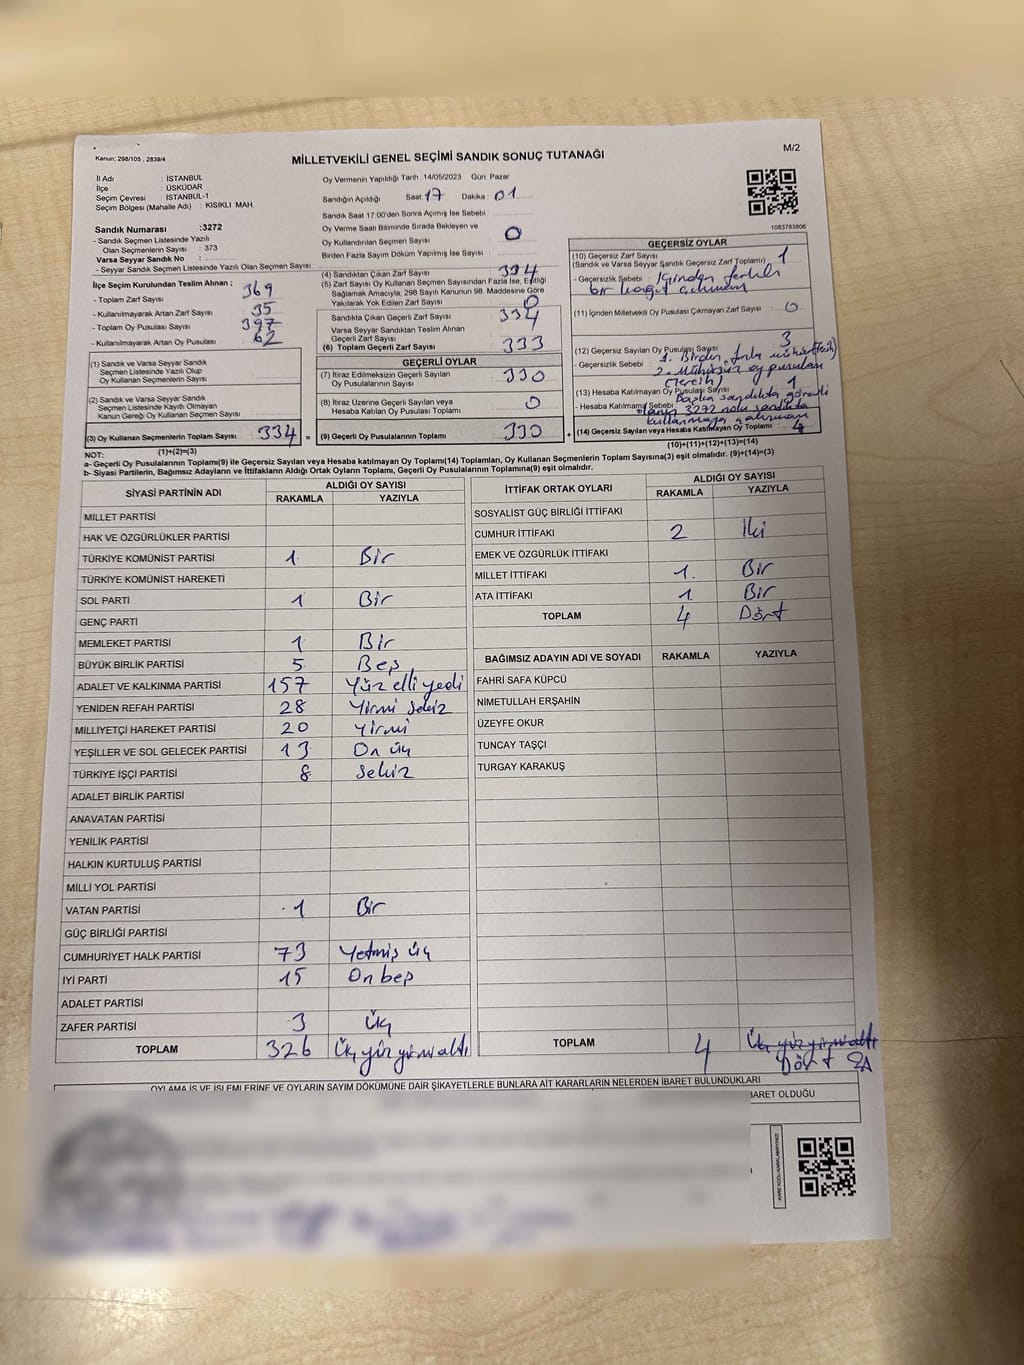 Kanun: 298/105 , 2839/4
MİLLETVEKİLİ GENEL SEÇİMİ SANDIK SONUÇ TUTANAĞI
M/2
İl Adı : İSTANBUL
İlçe : ÜSKÜDAR
Seçim Çevresi : İSTANBUL-1
Seçim Bölgesi (Mahalle Adı) : KISIKLI MAH.
Sandık Numarası :3272
- Sandık Seçmen Listesinde Yazılı
Olan Seçmenlerin Sayısı : 373
Varsa Seyyar Sandık No :
- Seyyar Sandık Seçmen Listesinde Yazılı Olan Seçmen Sayısı:
İlçe Seçim Kurulundan Teslim Alınan ;
- Toplam Zarf Sayısı : 369
- Kullanılmayarak Artan Zarf Sayısı : 35
- Toplam Oy Pusulası Sayısı : 397
- Kullanılmayarak Artan Oy Pusulası : 62
(1) Sandık ve Varsa Seyyar Sandık
Seçmen Listesinde Yazılı Olup
Oy Kullanan Seçmenlerin Sayısı
(2) Sandık ve Varsa Seyyar Sandık
Seçmen Listesinde Kayıtlı Olmayan
Kanun Gereği Oy Kullanan Seçmen Sayısı :
(3) Oy Kullanan Seçmenlerin Toplam Sayısı : 334 =
(1)+(2)=(3)
Oy Vermenin Yapıldığı Tarih : 14/05/2023 Gün: Pazar
Sandığın Açıldığı Saat: 17 Dakika : 01
Sandık Saat 17:00'den Sonra Açılmış İse Sebebi:
Oy Verme Saati Bitiminde Sırada Bekleyen ve
Oy Kullandırılan Seçmen Sayısı : 0
Birden Fazla Sayım Döküm Yapılmış İse Sayısı :
(4) Sandıktan Çıkan Zarf Sayısı : 334
(5) Zarf Sayısı Oy Kullanan Seçmen Sayısından Fazla İse, Eşitliği
Sağlamak Amacıyla, 298 Sayılı Kanunun 98. Maddesine Göre
Yakılarak Yok Edilen Zarf Sayısı : 0
Sandıkta Çıkan Geçerli Zarf Sayısı : 334
Varsa Seyyar Sandıktan Teslim Alınan
Geçerli Zarf Sayısı
(6) Toplam Geçerli Zarf Sayısı : 333
GEÇERLİ OYLAR
(7) İtiraz Edilmeksizin Geçerli Sayılan
Oy Pusulalarının Sayısı : 330
(8) İtiraz Üzerine Geçerli Sayılan veya
Hesaba Katılan Oy Pusulası Toplamı : 0
(9) Geçerli Oy Pusulalarının Toplamı : 330 +
1083783806
GEÇERSİZ OYLAR
(10) Geçersiz Zarf Sayısı
(Sandık ve Varsa Seyyar Sandık Geçersiz Zarf Toplamı) : 1
- Geçersizlik Sebebi : İçinden farklı
bir kağıt çıkması
(11) İçinden Milletvekili Oy Pusulası Çıkmayan Zarf Sayısı : 0
(12) Geçersiz Sayılan Oy Pusulası Sayısı : 3
- Geçersizlik Sebebi : 1. Birden fazla mühür (tercih)
2. Mühürsüz oy pusulası
(Tercih)
(13) Hesaba Katılmayan Oy Pusulası Sayısı : 1
- Hesaba Katılmama Sebebi : Başka sandıkta görevli
olanın 3272 nolu sandıkta
kullanmaya çalışması
(14) Geçersiz Sayılan veya Hesaba Katılmayan Oy Toplamı : 4
(10)+(11)+(12)+(13)=(14)
NOT:
a- Geçerli Oy Pusulalarının Toplamı(9) ile Geçersiz Sayılan veya Hesaba Katılmayan Oy Toplamı(14) Toplamları, Oy Kullanan Seçmenlerin Toplam Sayısına(3) eşit olmalıdır. (9)+(14)=(3)
b- Siyasi Partilerin, Bağımsız Adayların ve İttifakların Aldığı Ortak Oyların Toplamı, Geçerli Oy Pusulalarının Toplamına(9) eşit olmalıdır.
SİYASİ PARTİNİN ADI
ALDIĞI OY SAYISI
RAKAMLA YAZIYLA
MİLLET PARTİSİ
HAK VE ÖZGÜRLÜKLER PARTİSİ
TÜRKİYE KOMÜNİST PARTİSİ 1 Bir
TÜRKİYE KOMÜNİST HAREKETİ
SOL PARTİ 1 Bir
GENÇ PARTİ
MEMLEKET PARTİSİ 1 Bir
BÜYÜK BİRLİK PARTİSİ 5 Beş
ADALET VE KALKINMA PARTİSİ 157 Yüz elli yedi
YENİDEN REFAH PARTİSİ 28 Yirmi sekiz
MİLLİYETÇİ HAREKET PARTİSİ 20 Yirmi
YEŞİLLER VE SOL GELECEK PARTİSİ 13 On üç
TÜRKİYE İŞÇİ PARTİSİ 8 Sekiz
ADALET BİRLİK PARTİSİ
ANAVATAN PARTİSİ
YENİLİK PARTİSİ
HALKIN KURTULUŞ PARTİSİ
MİLLİ YOL PARTİSİ
VATAN PARTİSİ 1 Bir
GÜÇ BİRLİĞİ PARTİSİ
CUMHURİYET HALK PARTİSİ 73 Yetmiş üç
İYİ PARTİ 15 On beş
ADALET PARTİSİ
ZAFER PARTİSİ 3 Üç
TOPLAM 326 Üç yüz yirmi altı
İTTİFAK ORTAK OYLARI
ALDIĞI OY SAYISI
RAKAMLA YAZIYLA
SOSYALİST GÜÇ BİRLİĞİ İTTİFAKI
CUMHUR İTTİFAKI 2 İki
EMEK VE ÖZGÜRLÜK İTTİFAKI
MİLLET İTTİFAKI 1 Bir
ATA İTTİFAKI 1 Bir
TOPLAM 4 Dört
BAĞIMSIZ ADAYIN ADI VE SOYADI RAKAMLA YAZIYLA
FAHRİ SAFA KÜPCÜ
NİMETULLAH ERŞAHİN
ÜZEYFE OKUR
TUNCAY TAŞÇI
TURGAY KARAKUŞ
TOPLAM 4 Üç yüz yirmi altı
Dört
OYLAMA İŞ VE İŞLEMLERİNE VE OYLARIN SAYIM DÖKÜMÜNE DAİR ŞİKAYETLERLE BUNLARA AİT KARARLARIN NELERDEN İBARET BULUNDUKLARI
BARET OLDUĞU